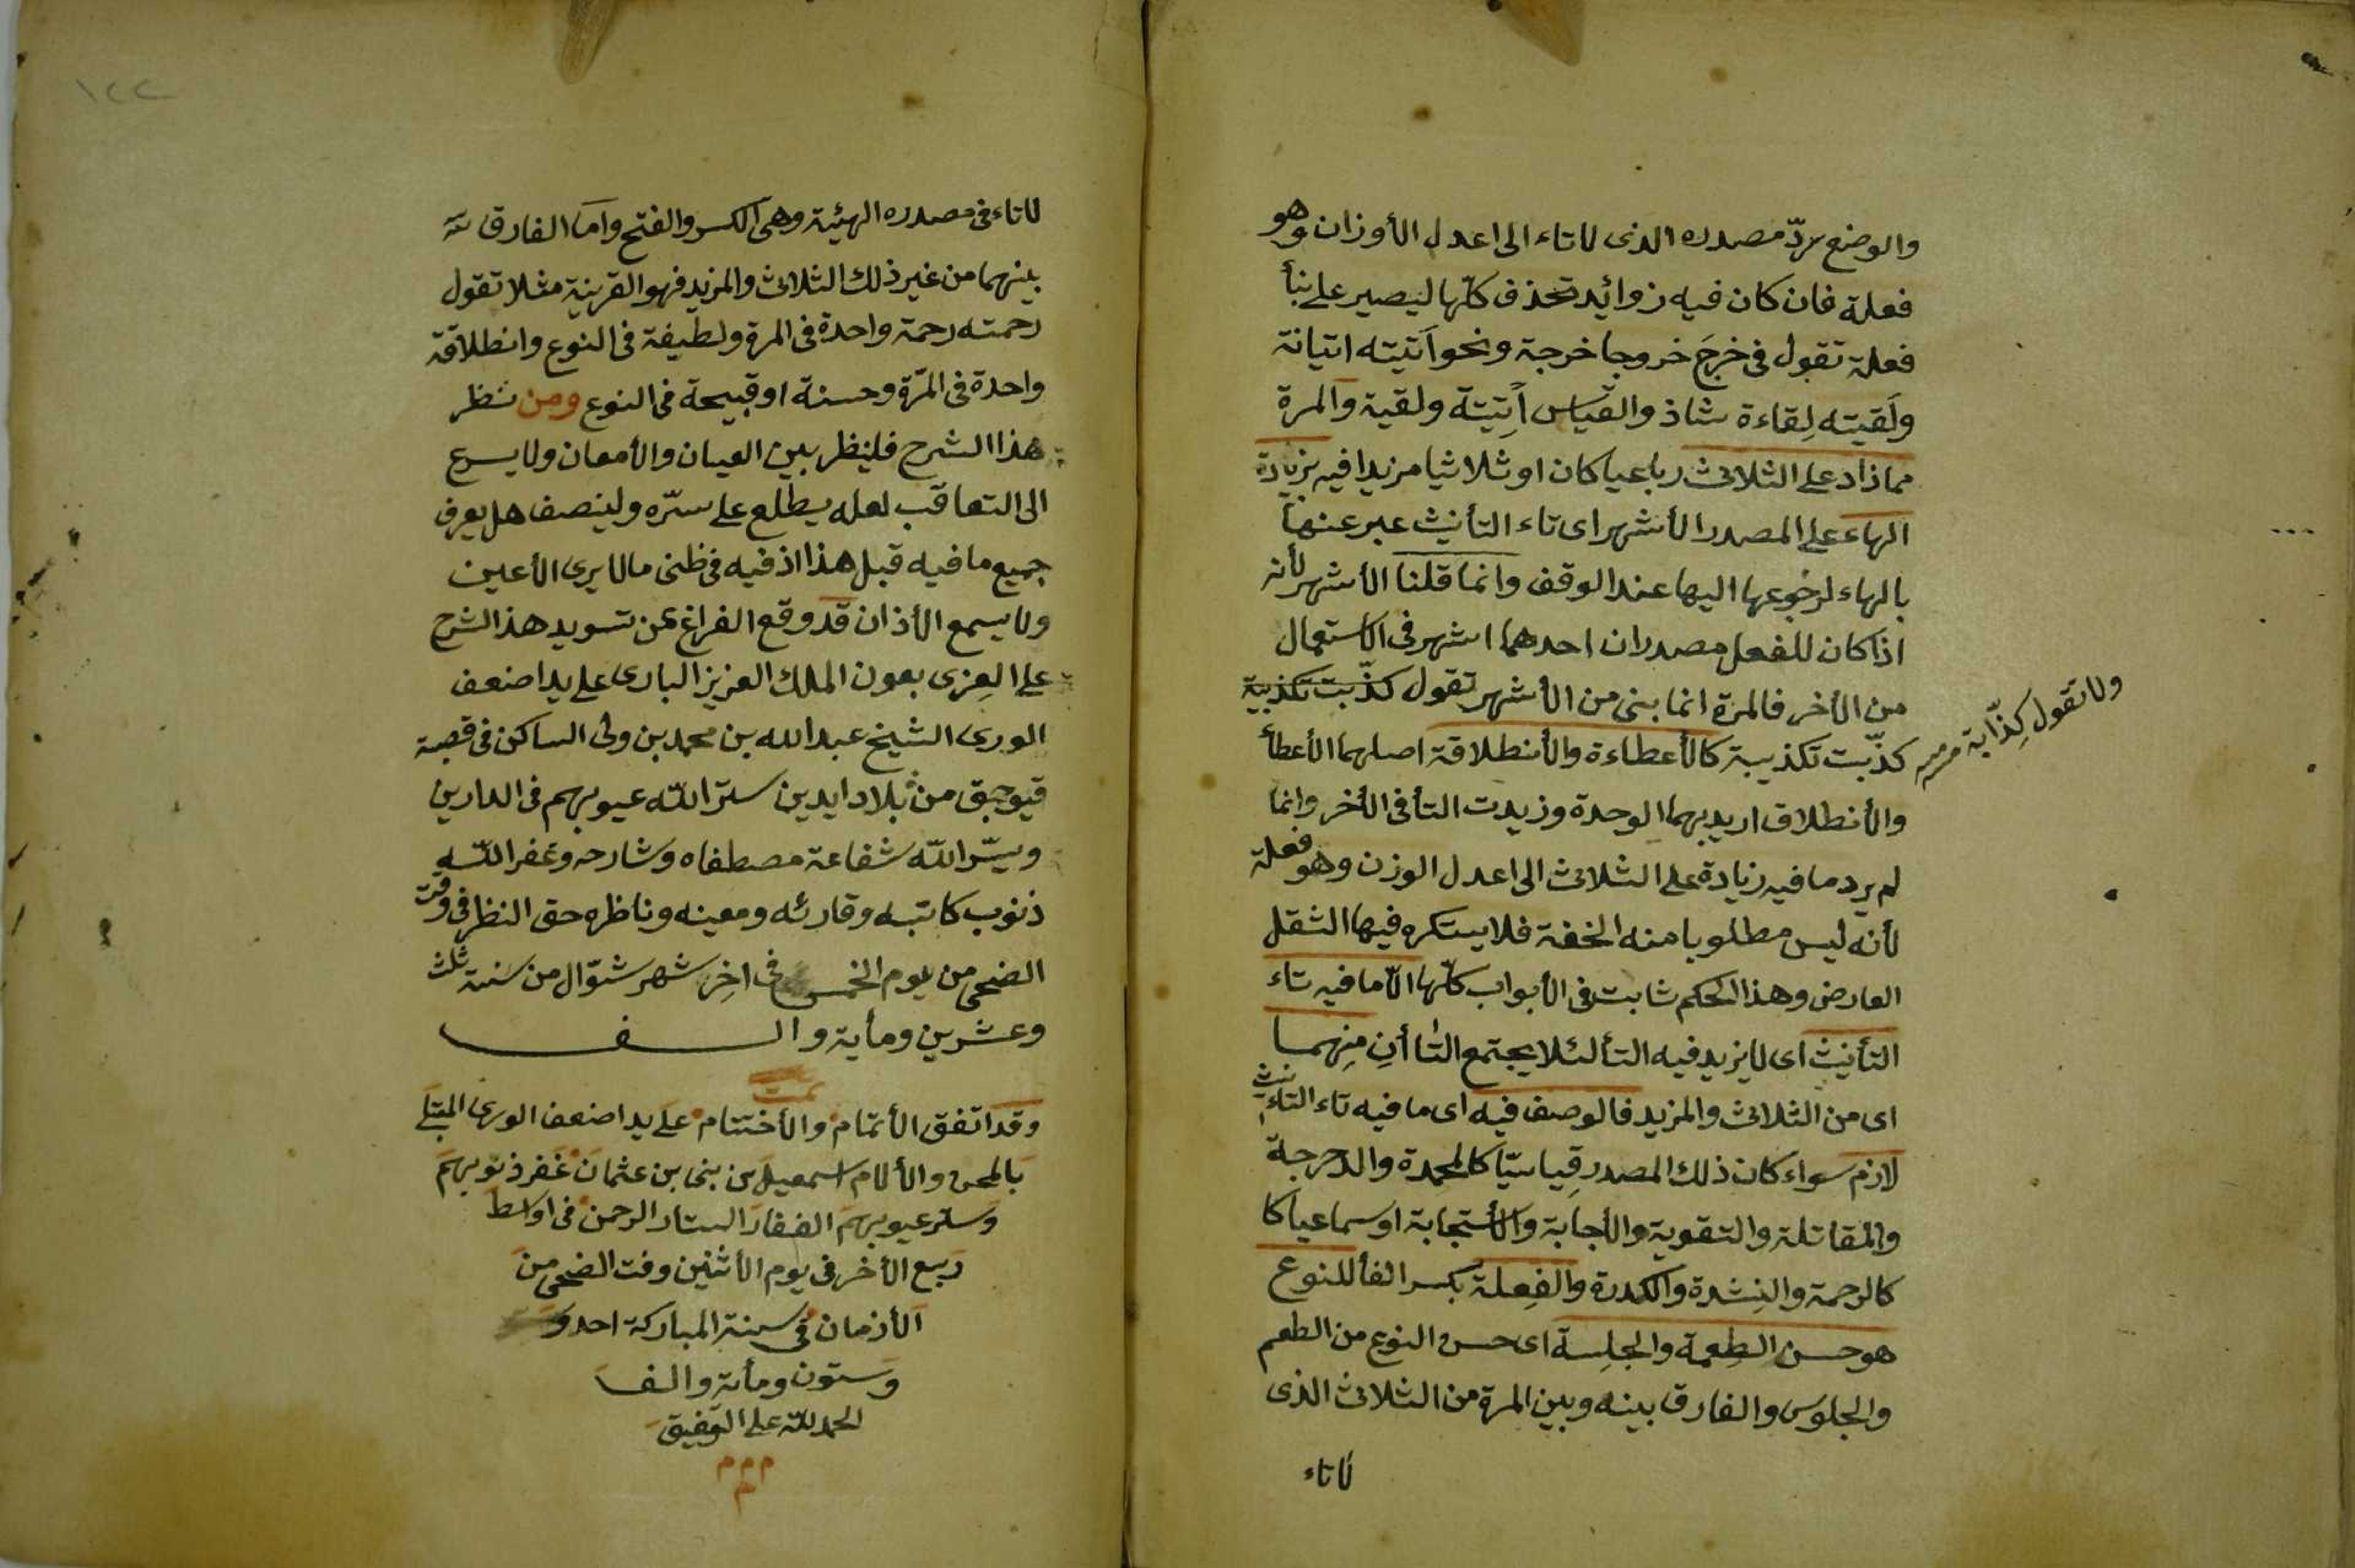 والوضع يردّ مصدره الذى لا تاء الى اعدل الأوزان وهو
فعلة فان كان فيه زوائد تحذف كلّها ليصير على بنأ
فعلة تقول فى خرجَ خروجا خرجة ونحو اَتيته اتيانة
ولَقيته لِقاءة شاذ والقياس أَتِيتة ولقية والمرة
مما زاد على الثلاثى رباعيا كان او ثلاثيا مزيدا فيه بزيادة
الهاء على المصدر الأشهر اى تاء التأنيث عبر عنها
بالهاء لرجوعها اليها عند الوقف وانما قلنا الأشهر لأنه
اذا كان للفعل مصدران احدهما اشهر فى الاستعمال
من الأخر فالمرة انما بنى من الأشهر تقول كذّبت تكذيبة
ولا تقول كِذّابة
كذّبت تكذيبة كالأعطاءة والأنطلاقة اصلهما الأعطأ
والأنطلاق اريد بهما الوحدة وزيدت التأ فى الأخر وانما
لم يرد ما فيه زيادة على الثلاثى الى اعدل الوزن وهو فعلة
لأنه ليس مطلوبا منه الخفة فلا يستكره فيها الثقل
العارض وهذا الحكم ثابت فى الأبواب كلّها الّا ما فيه تاء
التأنيث اى لا يزيد فيه التأ لئلا يجتمع التاأنِ مِنهما
اى من الثلاثى والمزيد فالوصف فيه اى ما فيه تاء التاءنيث
لازم سواء كان ذلك المصدر قِياسيّا كالمحمدة والدحرجة
والمقاتلة والتقوية والأجابة والأستجابة او سماعيا كا
كالرحمة والنِشدة والكدرة والفِعلة بكسر الفأ للنوع
هو حسن الطِعمة والجلِسة اى حسن النوع من الطعم
والجلوس والفارق بينه وبين المرة من الثلاثى الذى
لا تاء
١٢٢
لا تاء فى مصدره الهيئة وهى الكسر والفتح وامّا الفارق
بينهما من غير ذلك الثلاثى والمزيد فهو القرينة مثلا تقول
رحمته رحمة واحدة فى المرة ولطيفة فى النوع وانطلاقة
واحدة فى المرّة وحسنة او قبيحة فى النوع ومن نظر
هذا الشرح فلينظر بعين العيان والأمعان ولا يسرع
الى التعاقب لعله يطلع على سرّه ولينصف هل يعرف
جميع ما فيه قبل هذا اذ فيه فى ظنى ما لا يرى الأعين
ولا يسمع الأذان قد وقع الفراغ عن تسويد هذ الشرح
على العِزى بعون الملك العزيز البارى على يد اضعف
الورى الشيخ عبد الله بن محمد بن ولى الساكن فى قصبة
قيوجق من بلاد ايدين ستر الله عيوبهم فى الدارين
ويسّر الله شفاعة مصطفاه وشارحه وغفر الله
ذنوب كاتبه وقارئه ومعينه وناظره حق النظر فى وقت
الضحى من يوم الخمس فى اخِر شهر شوّال من سَنة ثلث
وعشرين ومأية والف
تمت
وقد اتفق الأتمام والأختتام على يد اضعف الورى المبتلى
بالمحن والألام اسمعيل بن بنى بن عثمان غفر ذنوبهم
وستر عيوبهم الغفار الستار الرحمن فى اواسط
ربيع الأخر فى يوم الأثنين وقت الضحى من
الأزمان فى سنة المباركة احد و
وستون ومأة والف
الحمد لله على التوفيق
م م م
م